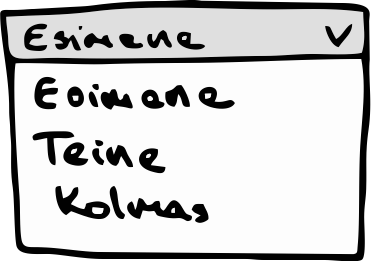 Esimene
Esimene
Teine
Kolmas